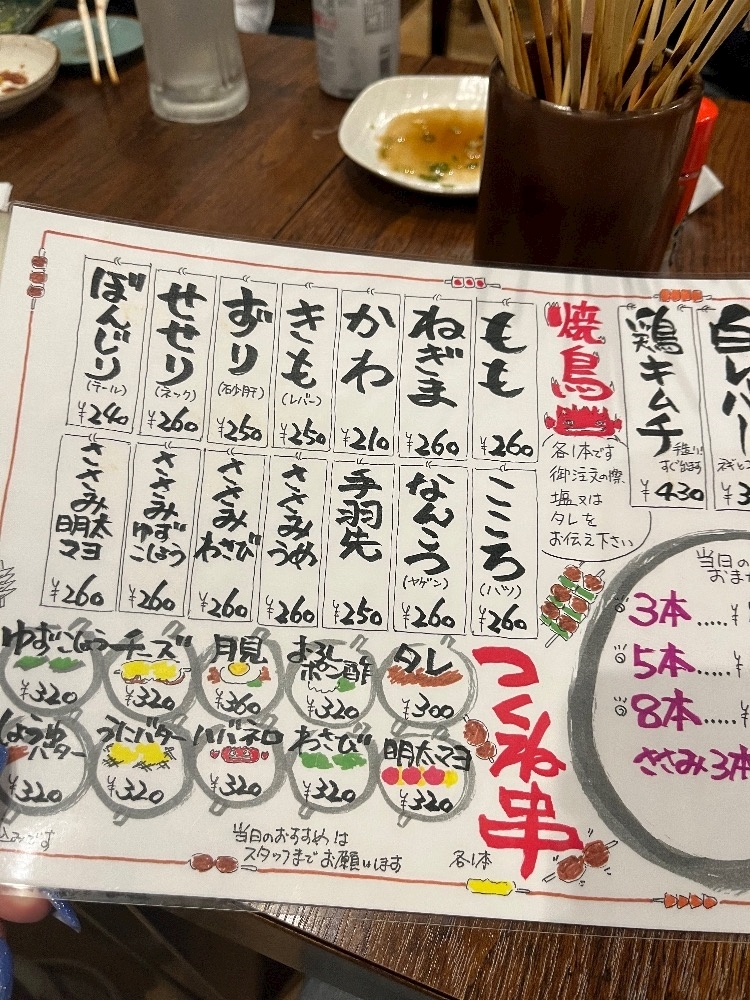 鶏キムチ
手造り!
すぐ出ます
¥430
焼鳥
各1本です
御注文の際、
塩又は
タレを
お伝え下さい
もも
¥260
ねぎま
¥260
かわ
¥210
きも
(レバー)
¥250
ずり
(砂肝)
¥250
せせり
(ネック)
¥260
ぼんじり
(テール)
¥240
こころ
(ハツ)
¥260
なんこつ
(ヤゲン)
¥260
手羽先
¥250
ささみ
うめ
¥260
ささみ
わさび
¥260
ささみ
ゆず
こしょう
¥260
ささみ
明太
マヨ
¥260
当日の
3本.....¥
5本.....¥
8本.....¥
ささみ3本
つくね串
各1本
タレ
¥300
おろし
ポン酢
¥320
月見
¥360
チーズ
¥320
ゆずこしょう
¥320
明太マヨ
¥320
わさび
¥320
ハバネロ
¥320
うにバター
¥320
しょうゆ
バター
¥320
当日のおすすめは
スタッフまでお願いします
込みです